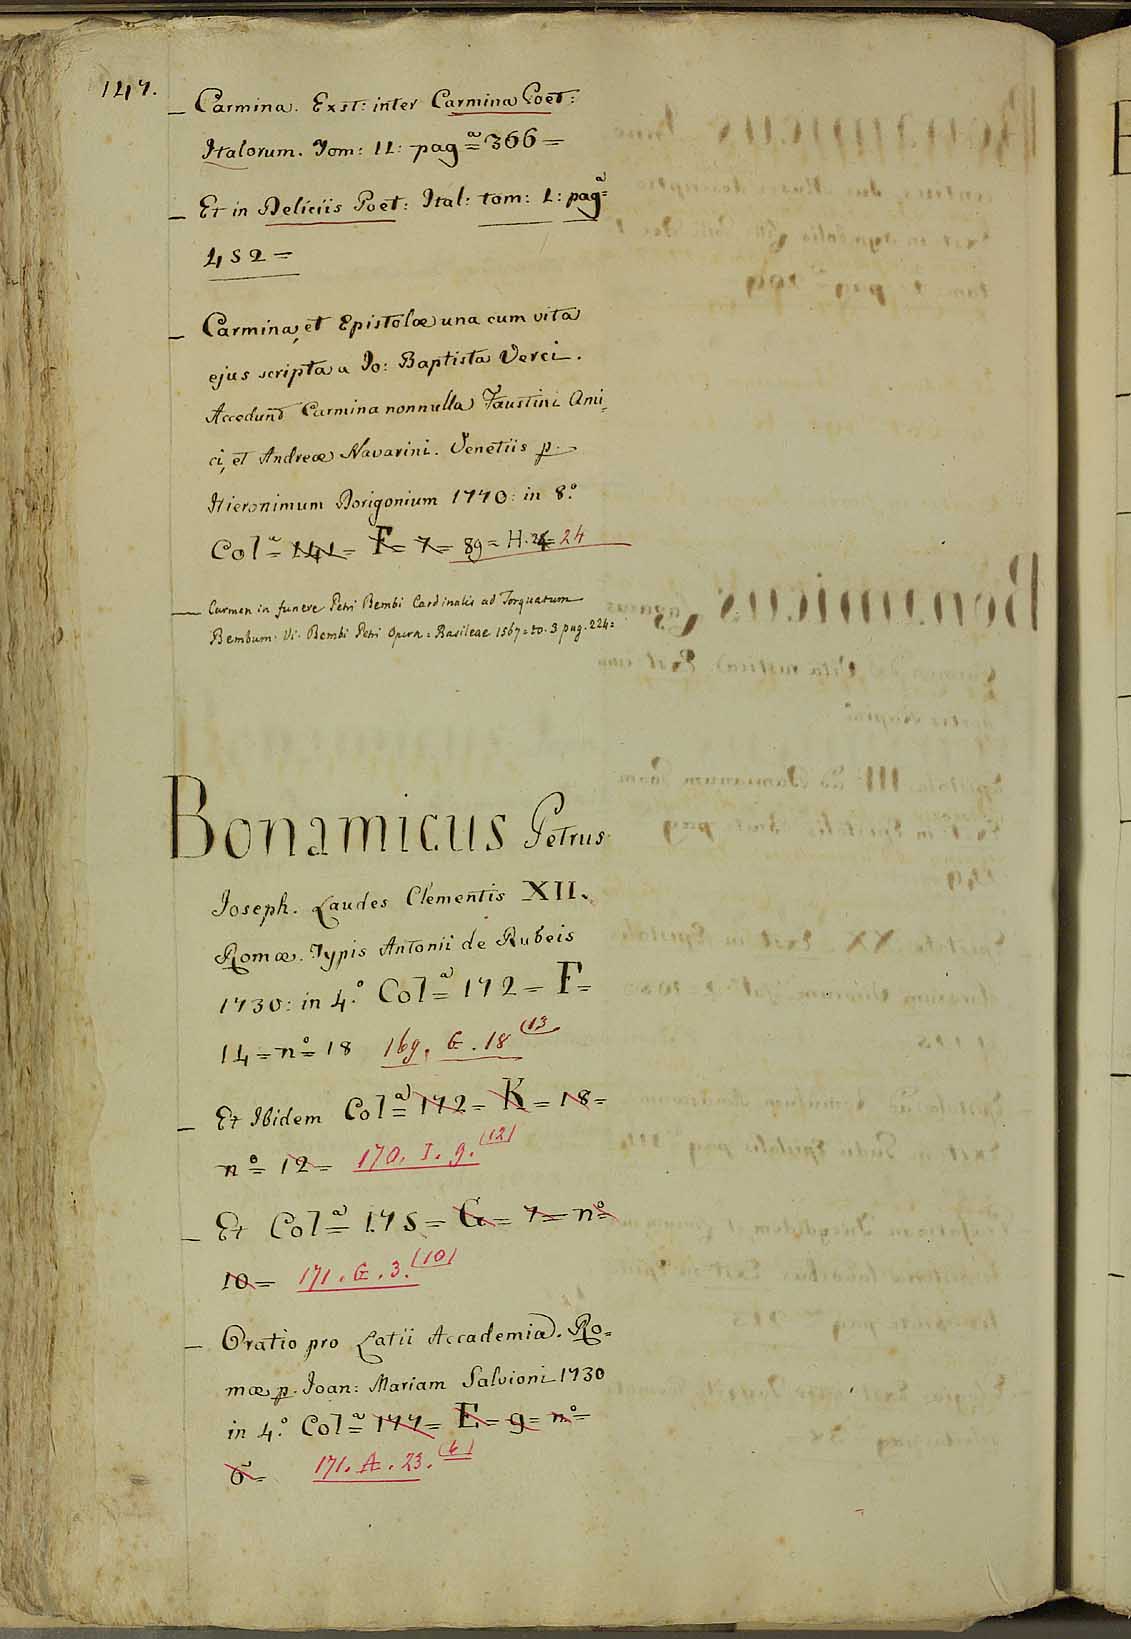 147.
– Carmina. Exst: inter Carmina Poet:
Italorum. Tom: II: pagª= 366 =
– Et in Deliciis Poet: Ital: tom: I: pagª=
452 =
– Carmina, et Epistolæ una cum vita
ejus scripta a Jo: Baptista Verci.
Accedunt Carmina nonnulla Faustini Ami-
ci, et Andreæ Navarini. Venetiis p.
Hieronimum Dorigonium 1770: in 8.º
Colª= 141 = F = 7 = 89 = H. 24 = 24
– Carmen in funere Petri Bembi Cardinalis ad Torquatum
Bembum. Vi. Bembi Petri Opera = Basileae 1567 = to. 3 pag. 224 =
Bonamicus Petrus
Joseph. Laudes Clementis XII.
Romæ. Typis Antonii de Rubeis
1730: in 4.º Colª= 172 = F =
14 = nº= 18 169. G. 18 (13
– Et Ibidem Colª= 172 = K = 18 =
nº= 12 = 170. I. 9. (12)
– Et Colª= 175 = G = 7 = nº=
10 = 171. G. 3. (10)
– Oratio pro Latii Accademia. Ro=
mæ p. Joan: Mariam Salvioni 1730
in 4.º Colª= 177 = E = 9 = nº=
6 = 171. A. 23. (6)